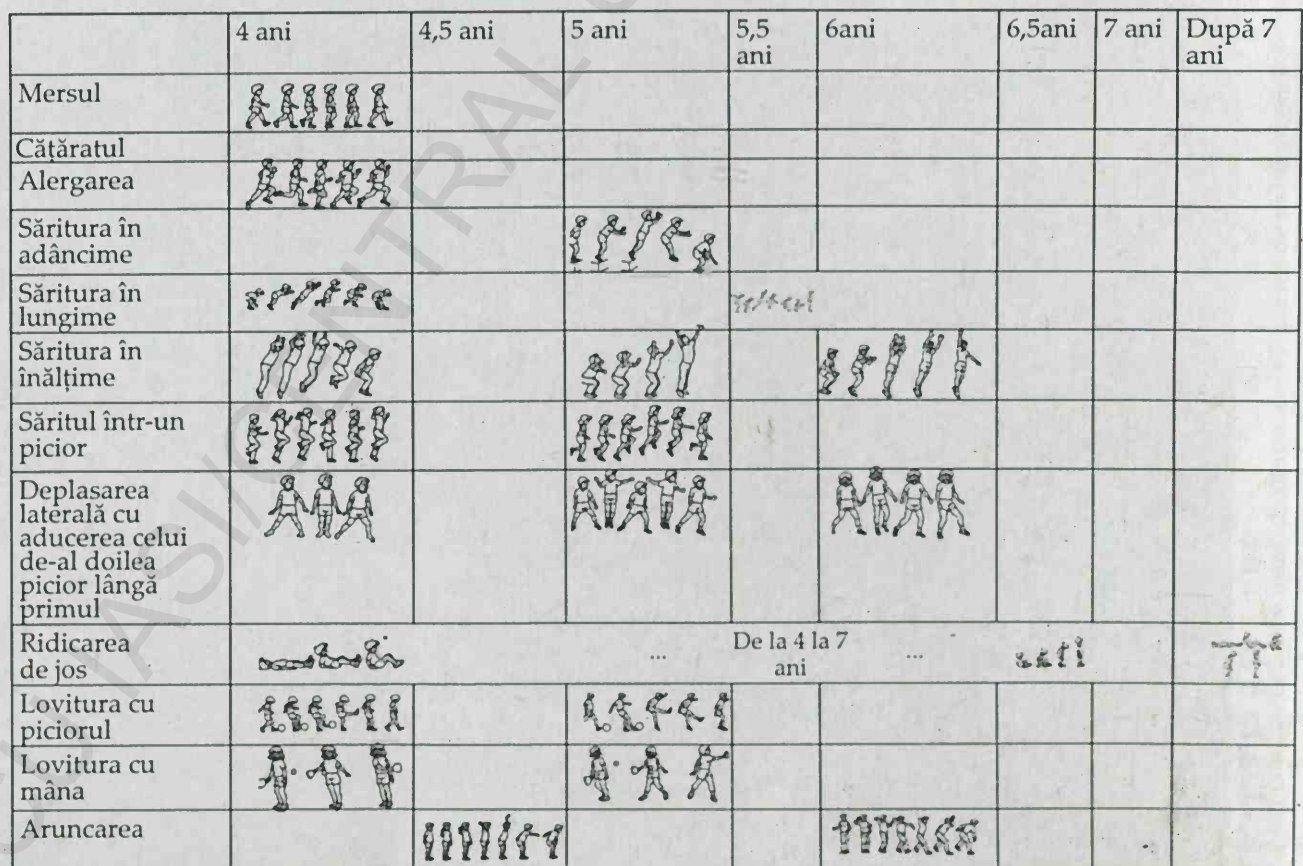 4 ani 4,5 ani 5 ani 5,5 ani 6ani 6,5ani 7 ani După 7 ani
Mersul
Cățăratul
Alergarea
Săritura în
adâncime
Săritura în
lungime
Săritura în
înălțime
Săritul într-un
picior
Deplasarea
laterală cu
aducerea celui
de-al doilea
picior lângă
primul
Ridicarea
de jos
... De la 4 la 7 ani ...
Lovitura cu
piciorul
Lovitura cu
mâna
Aruncarea
IASI/CENTRAL